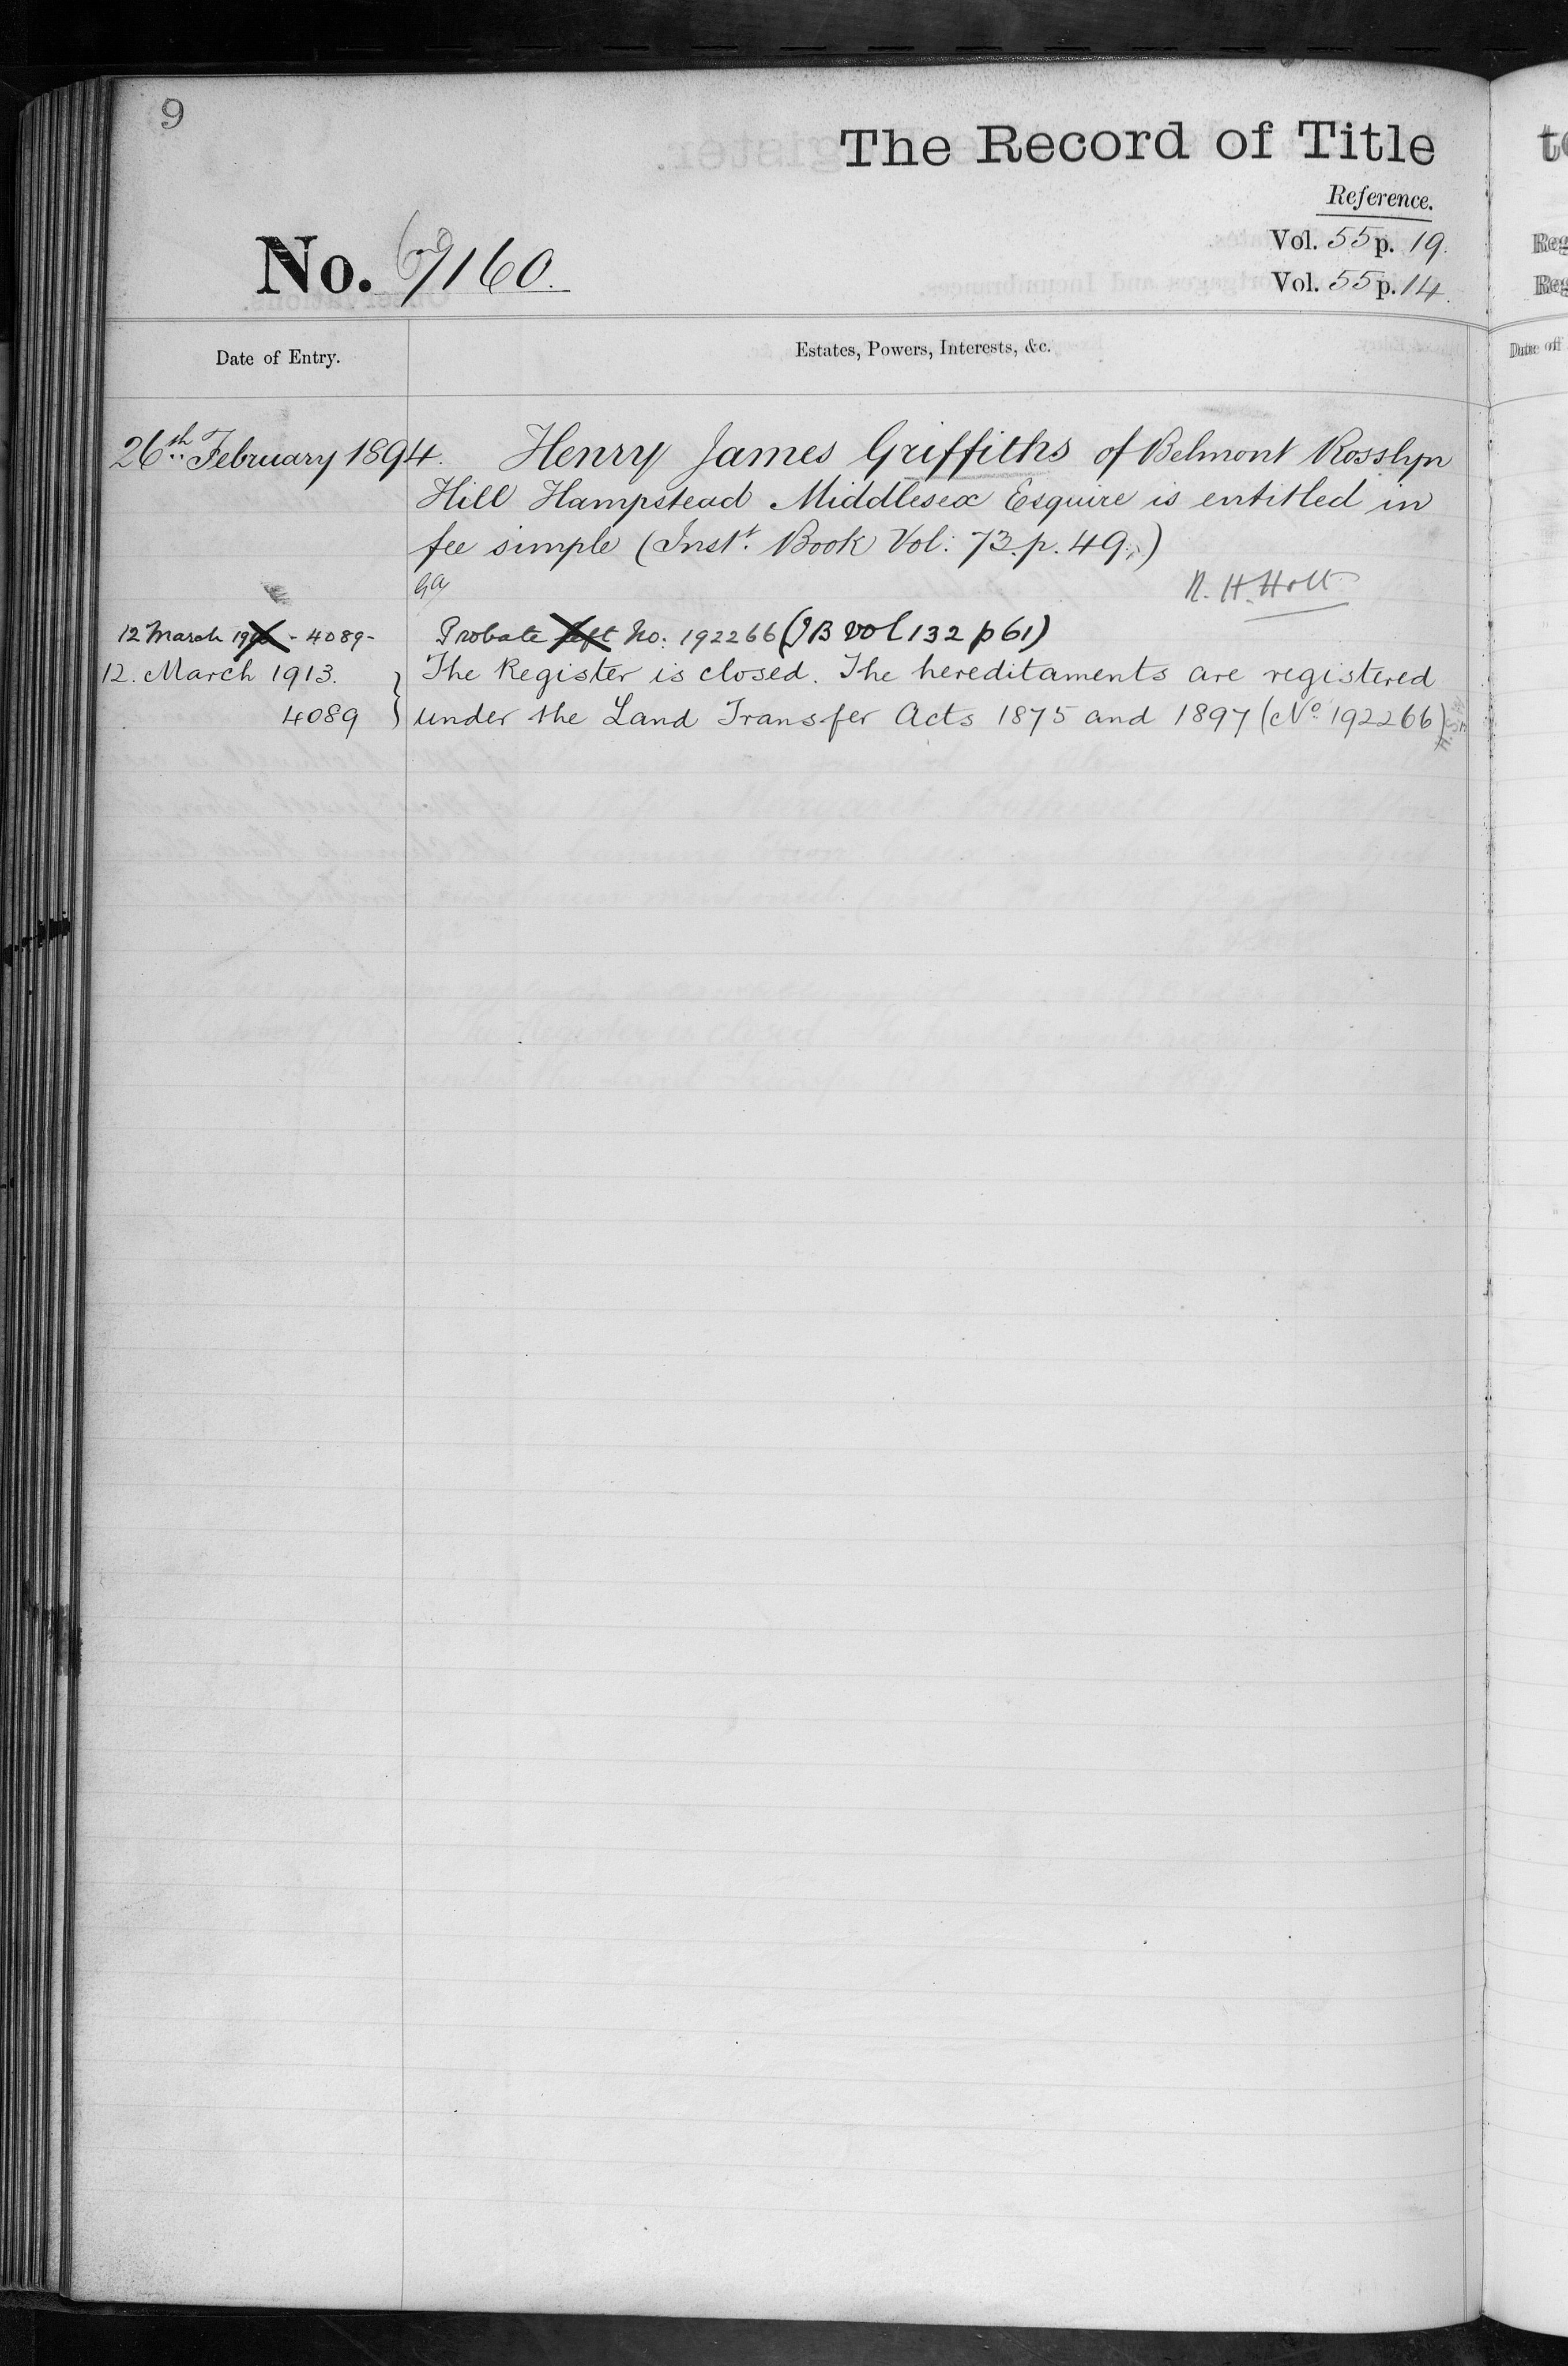 9
The Record of Title
Reference.
No. 69160.
Vol. 55 p. 19.
Vol. 55 p. 14.
Date of Entry.
Estates, Powers, Interests, &c.
26th February 1894. Henry James Griffiths of Belmont Rosslyn
Hill Hampstead Middlesex Esquire is entitled in
fee simple (Inst. Book Vol: 73. p. 49.)
R. H. Holt
12 March 19 - 4089 - Probate left No: 192266 (IB vol 132 p 61)
12. March 1913. The Register is closed. The hereditaments are registered
4089 under the Land Transfer Acts 1875 and 1897 (No 192266)